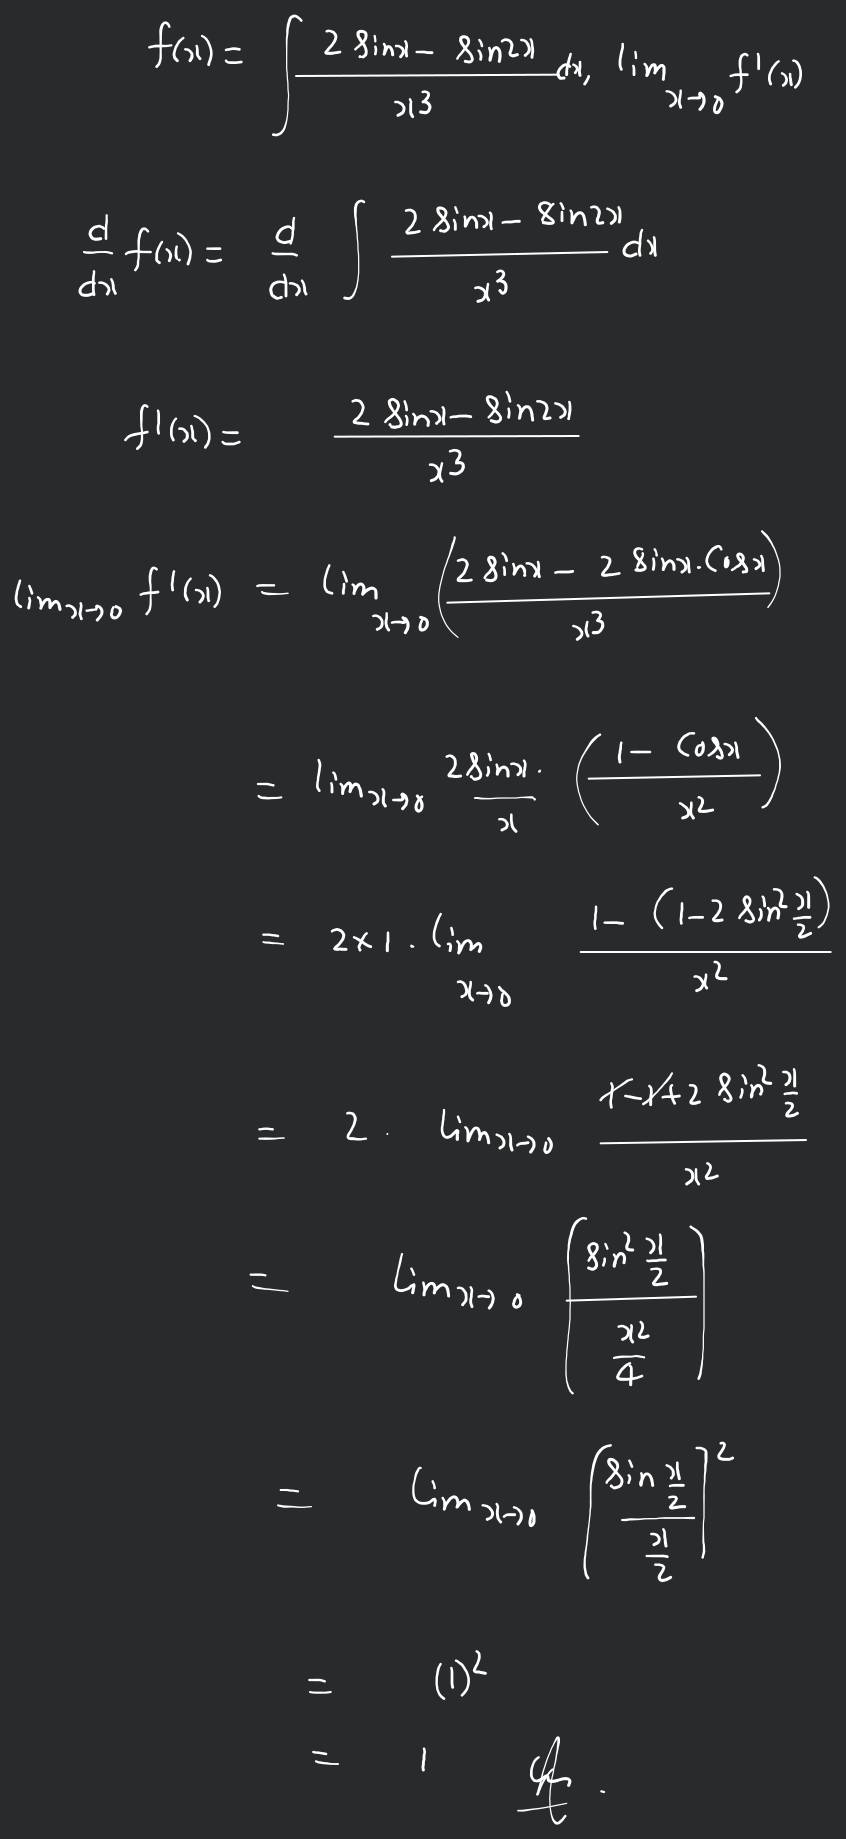 f(x) = ∫ (2 sinx − sin2x)/x³ dx, lim x→0 f'(x)
d/dx f(x) = d/dx ∫ (2 sinx − sin2x)/x³ dx
f'(x) = (2 sinx − sin2x)/x³
lim x→0 f'(x) = lim x→0 ((2 sinx − 2 sinx.Cosx)/x³)
= lim x→0 2sinx/x . ((1 − Cosx)/x²)
= 2×1 . lim x→0 (1 − (1−2 sin² x/2))/x²
= 2 . lim x→0 (1−1+2 sin² x/2)/x²
= lim x→0 ((sin² x/2)/(x²/4))
= lim x→0 ((sin x/2)/(x/2))²
= (1)²
= 1